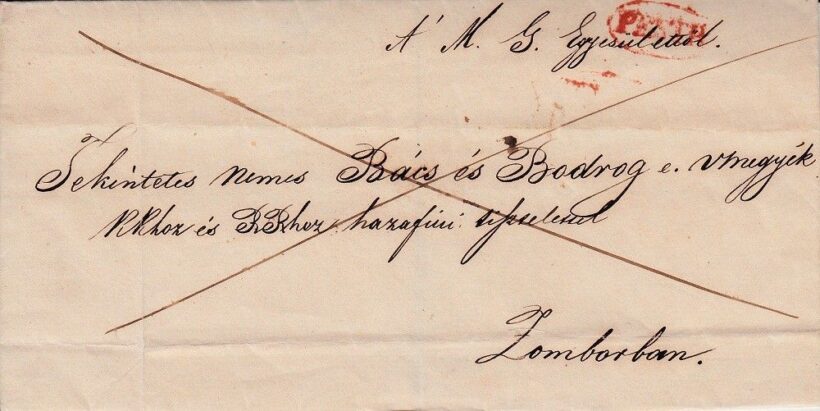 A' M. G. Egyesülettől.
PESTH
Tekintetes nemes Bács és Bodrog e. vmegyék
KKhoz és RRhez hazafiúi tisztelettel
Zomborban.